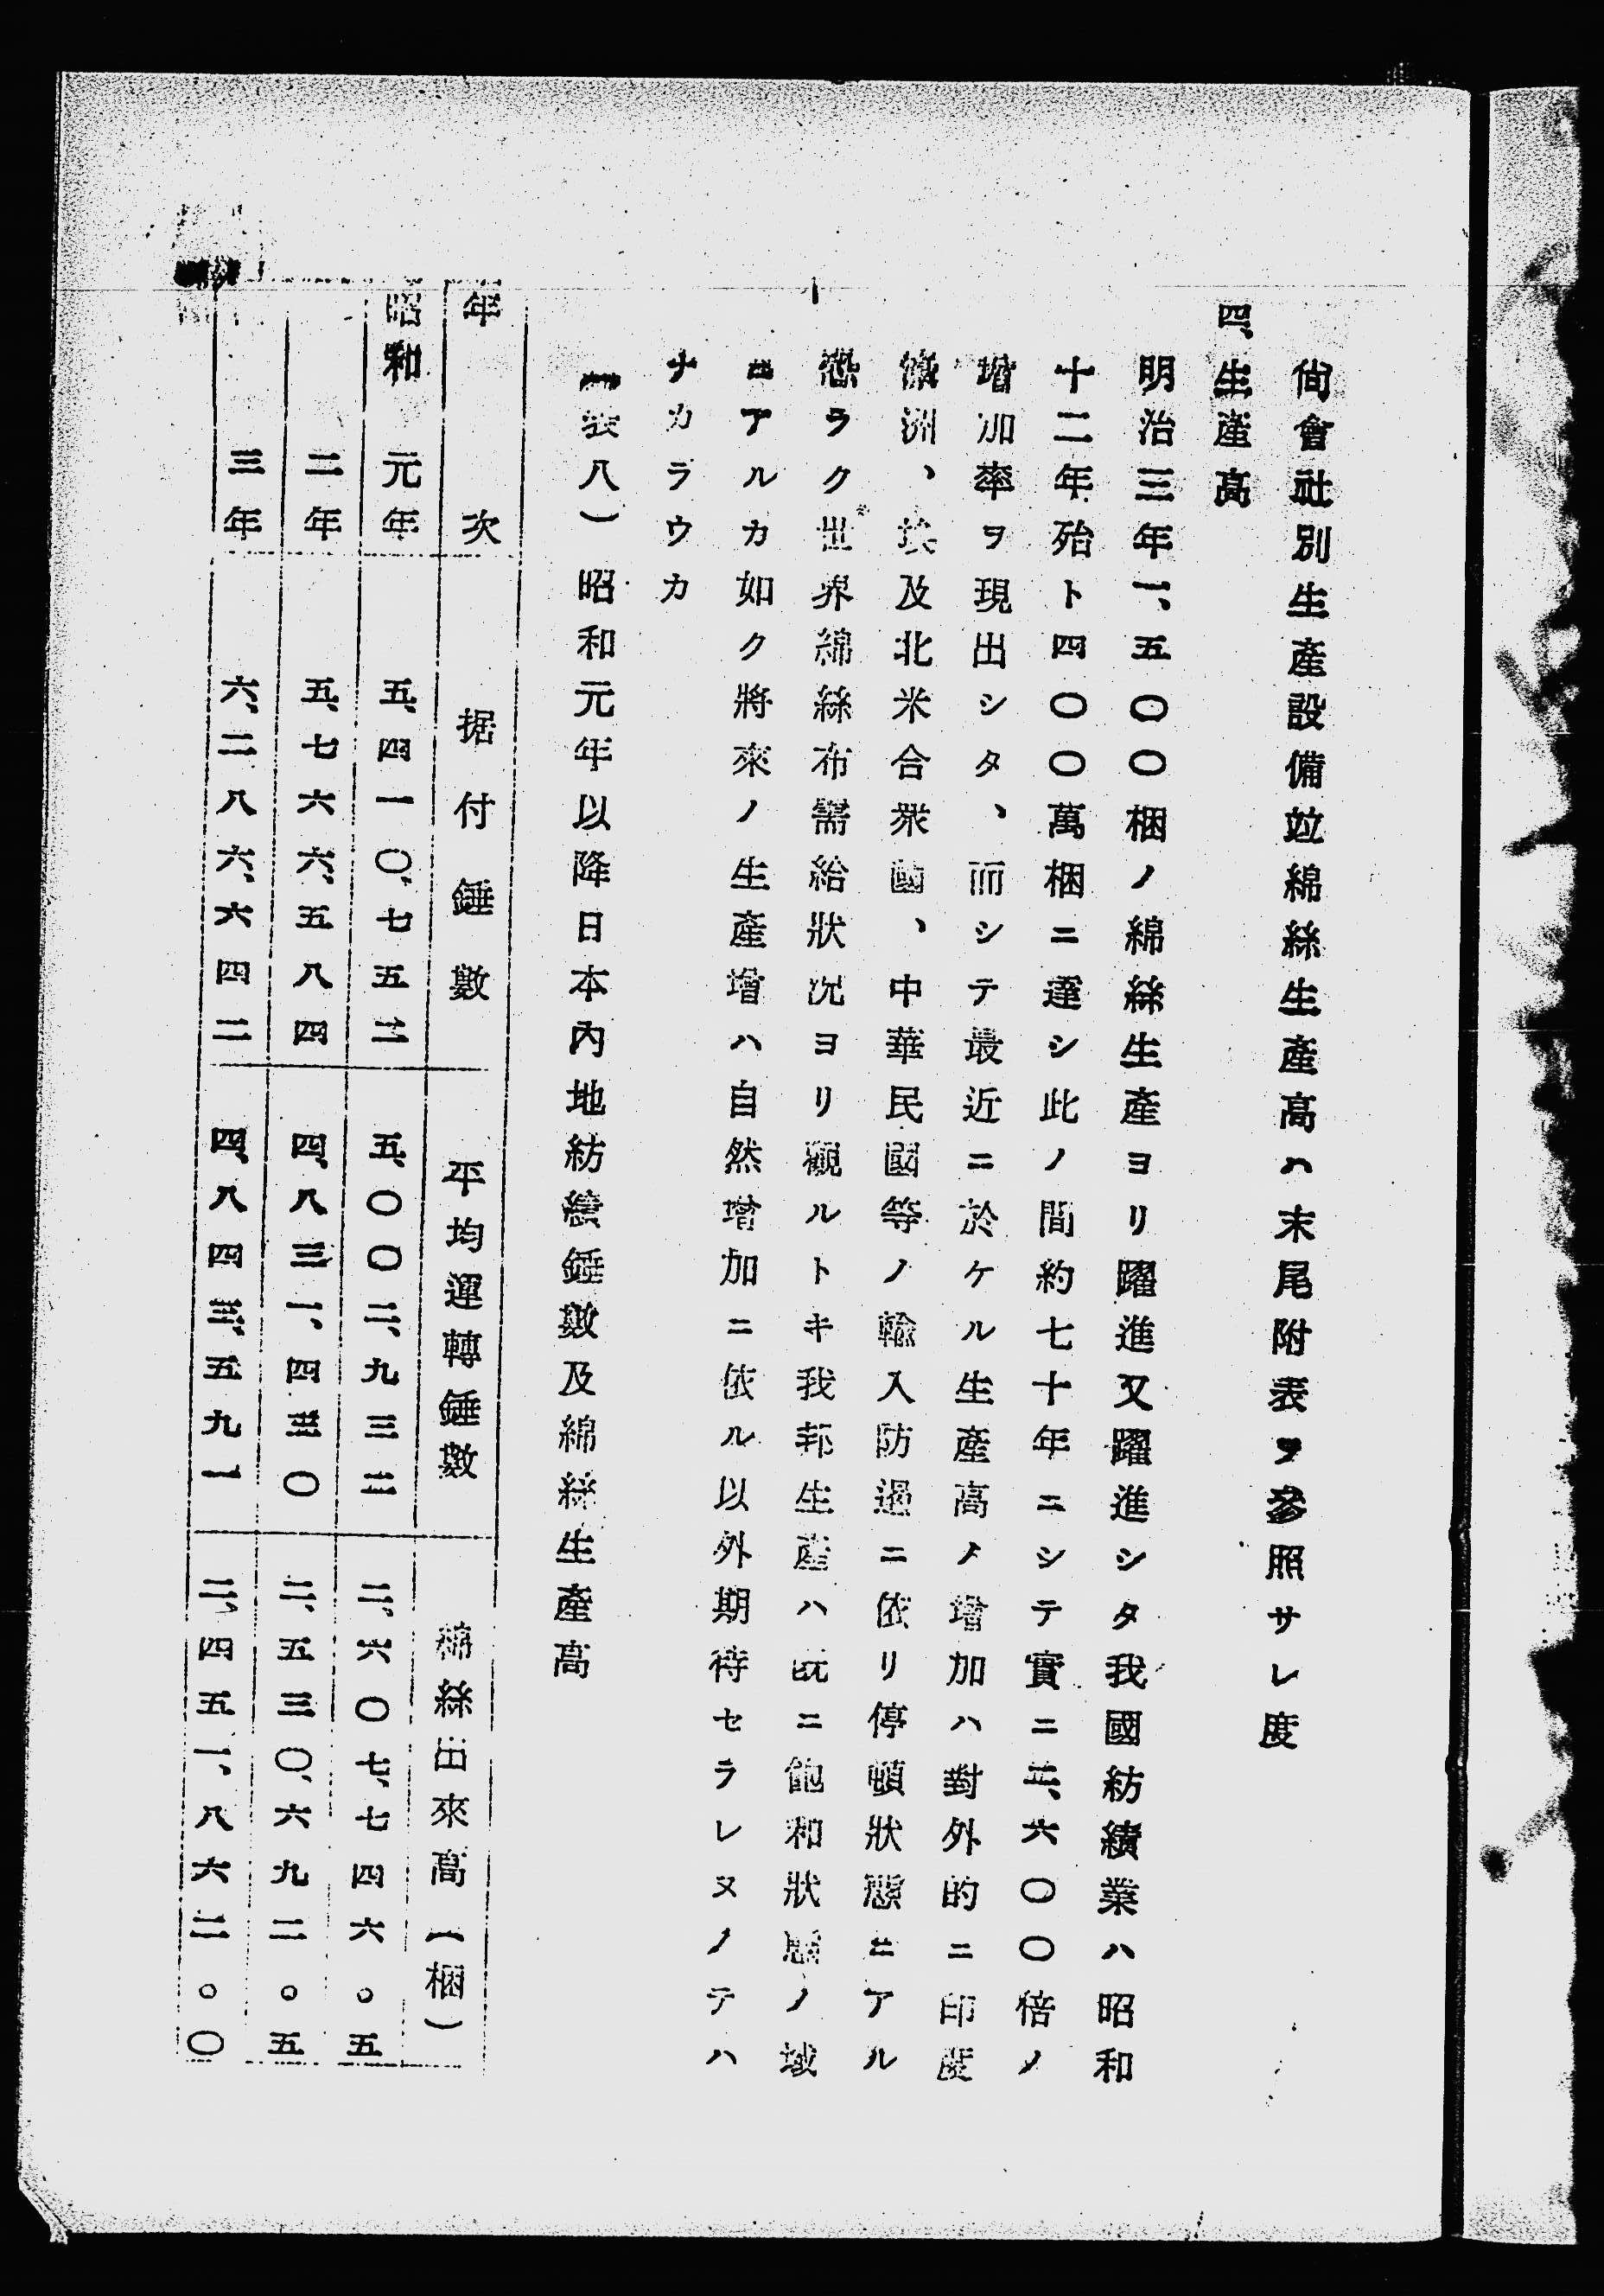 尙會社別生產設備竝綿絲生產高ハ末尾附表ヲ參照サレ度
四、生產高
明治三年一、五〇〇梱ノ綿絲生產ヨリ躍進又躍進シタ我國紡績業ハ昭和
十二年殆ト四〇〇萬梱ニ達シ此ノ間約七十年ニシテ實ニ二、六〇〇倍ノ
增加率ヲ現出シタ、而シテ最近ニ於ケル生產高ノ增加ハ對外的ニ印度
濠洲、埃及北米合衆國、中華民國等ノ輸入防遏ニ依リ停頓狀態ニアル
恐ラク世界綿絲布需給狀況ヨリ觀ルトキ我邦生產ハ既ニ飽和狀態ノ域
ニアルカ如ク將來ノ生產增ハ自然增加ニ依ル以外期待セラレヌノテハ
ナカラウカ
(表八)昭和元年以降日本內地紡績錘數及綿絲生產高
年次 据付錘數 平均運轉錘數 綿絲出來高(梱)
昭和元年 五、四一〇、七五二 五、〇〇二、九三二 二、六〇七、七四六。五
二年 五、七六六、五八四 四、八三一、四三〇 二、五三〇、六九二。五
三年 六、二八六、六四二 四、八四三、五九一 二、四五一、八六二。〇